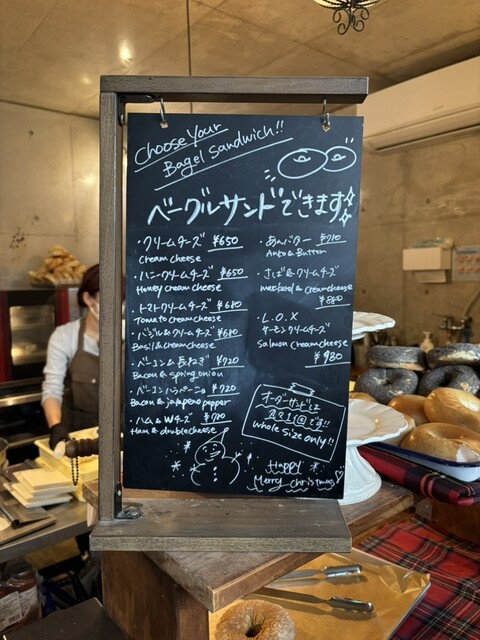 Choose Your
Bagel Sandwich!!
ベーグルサンドできます
・クリームチーズ ¥650
Cream cheese
・ハニークリームチーズ ¥650
Honey cream cheese
・トマトクリームチーズ ¥680
Tomato creamcheese
・バジル&クリームチーズ ¥680
Basil & creamcheese
・ベーコン&長ねぎ ¥720
Bacon & spring onion
・ベーコンハラペーニョ ¥720
Bacon & jalapeno pepper
・ハム&Wチーズ ¥710
Ham & doublecheese
・あんバター ¥710
Anko & Butter
・さば&クリームチーズ
mackerel & Creamcheese
¥880
・L.O.X
サーモンクリームチーズ
Salmon creamcheese
¥980
オーダーサンドは
全て1個です!!
Whole size only!!
Merry Christmas